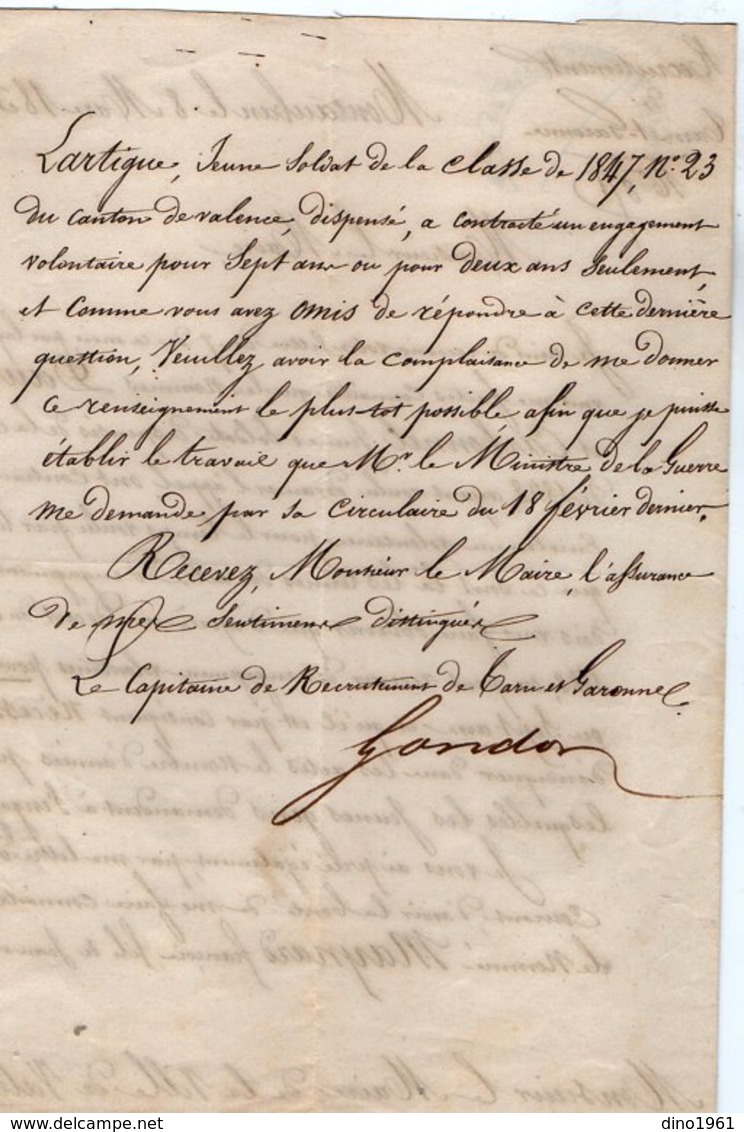 Lartigue, Jeune Soldat de la classe de 1847, N.° 23
du canton de valence, dispensé, a contracté un engagement
volontaire pour Sept ans ou pour deux ans seulement,
et comme vous avez omis de répondre à cette dernière
question, Veuillez avoir la complaisance de me donner
ce renseignement le plus-tôt possible, afin que je puisse
établir le travail que M.r le Ministre de la Guerre
me demande par sa circulaire du 18 février dernier.
Recevez, Monsieur le Maire, l'assurance
de mes Sentimens distingués
Le Capitaine de Recrutement de Tarn et Garonne
Gondor
dino1961